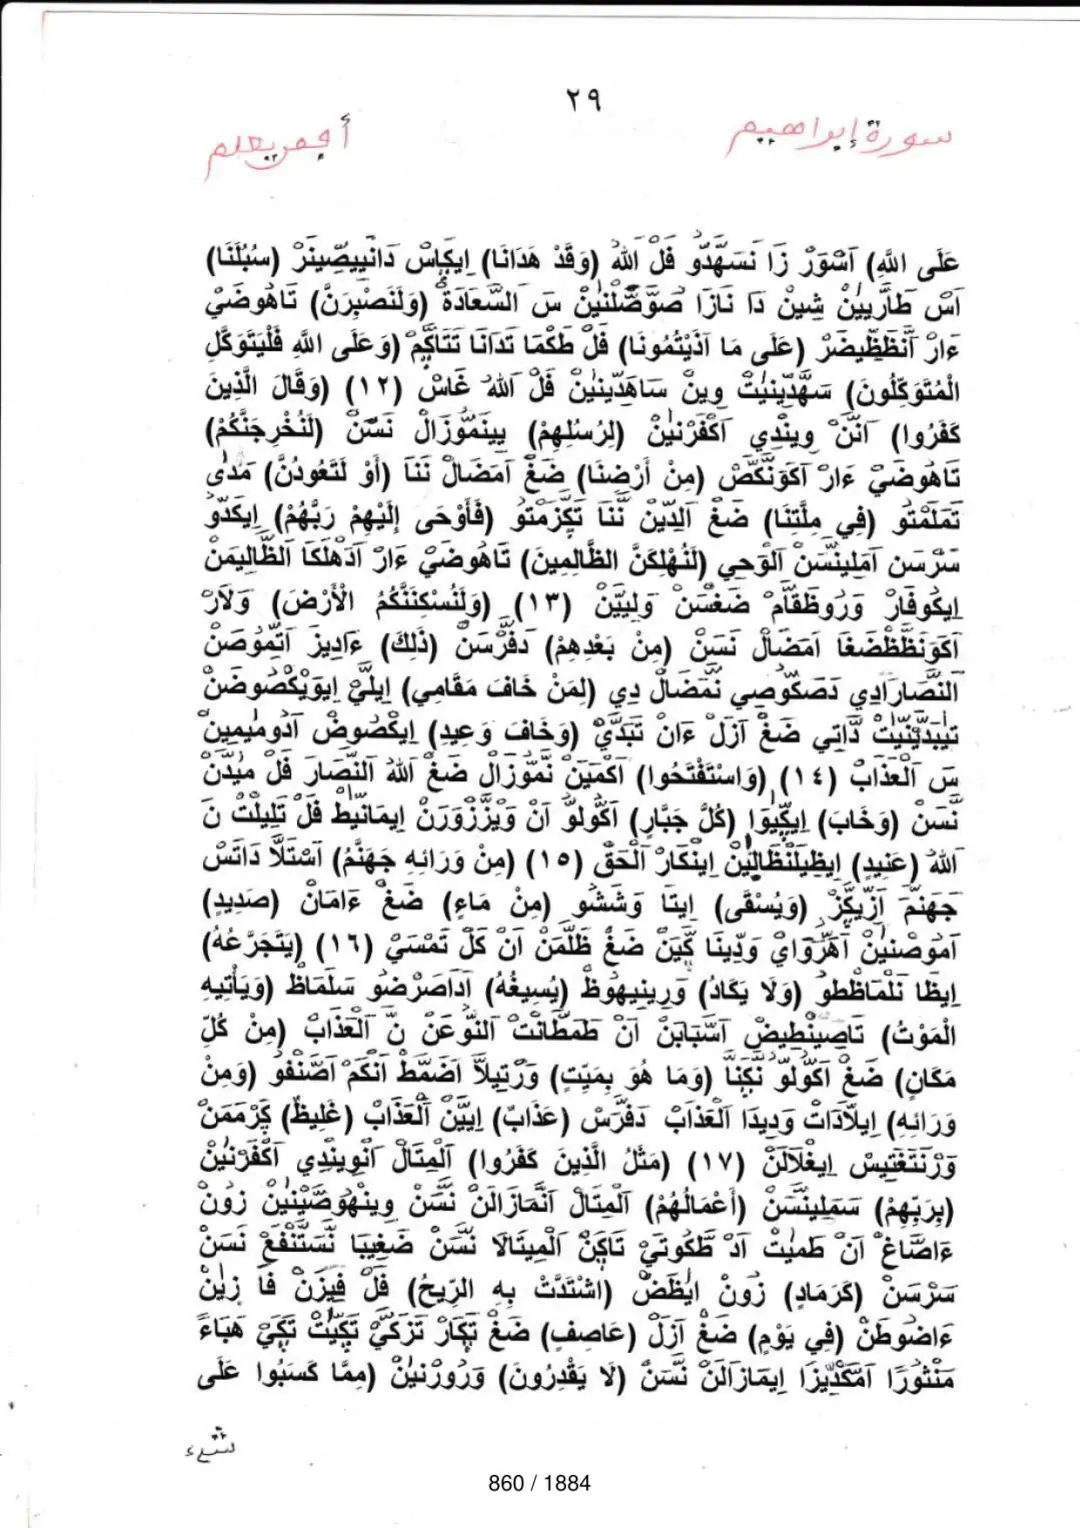 ٢٩
سورة إبراهيم
عَلَى اللَّهِ) آسُّورْ زَا نَسَهَّدُّو فَلْ اللهُ (وَقَدْ هَدَانَا) اِيكَاسْ دَانَّيِيصِّينَرْ (سُبُلَنَا)
اَسْ طَارِيِيْن شِينْ دَا نَازَا صُوَصَّلْنَيْن سَ السَّعَادَةْ (وَلَنَصْبِرَنَّ) تَاهُوضَيْ
ءَارْ أَنَظَظِيضَرْ (عَلَى مَا آذَيْتُمُونَا) فَلْ طَكْمَا تَدَانَا تَتَاكَّمْ (وَعَلَى اللَّهِ فَلْيَتَوَكَّلِ
الْمُتَوَكِّلُونَ) سَهَّدِّينِيْتْ وِينْ سَاهَدِّينِيْنْ فَلْ اللهُ غَاسْ (١٢) (وَقَالَ الَّذِينَ
كَفَرُوا) اَنَّنْ وِينْدِي اَكْفَرْنِيْنْ (لِرُسُلِهِمْ) يِينَمُّوزَالْ نَسَنْ (لَنُخْرِجَنَّكُمْ)
تَاهُوضَيْ ءَارْ اَكَوَنَّكَضْ (مِنْ أَرْضِنَا) ضَغْ اَمَضَالْ نَنَا (أَوْ لَتَعُودُنَّ) مَدَى
تَمَلَمْتُو (فِي مِلَّتِنَا) ضَغْ اَلدِّينْ نَّنَا تَكَّزَمْتُو (فَأَوْحَى إِلَيْهِمْ رَبُّهُمْ) اِيكَدُّو
سَرْسَن اَمَلِينَسَنْ اَلْوَحِي (لَنُهْلِكَنَّ الظَّالِمِينَ) تَاهُوضَيْ ءَارْ اَدَهْلَكَا اَلظَّالِيمَنْ
اِيكُوفَارْ وَرُوظَفَّامْ ضَغْسَنْ وَلِيَيَّنْ (١٣) (وَلَنُسْكِنَنَّكُمُ الْأَرْضَ) وَلَارْ
اَكَوَنَظَّظْضَغَا اَمَضَالْ نَسَنْ (مِنْ بَعْدِهِمْ) دَفَّرْسَنْ (ذَلِكَ) ءَادِيزَ اَتَّمُوصَنْ
اَلنَّصَارَادِي دَصَكُّوصِي نَمَّضَالْ دِي (لِمَنْ خَافَ مَقَامِي) اِيلَيْ اِيوَيْكَصُوضَنْ
تِيبَدِّينِيْتْ دَّاتِي ضَغْ اَزَلْ ءَانْ تَبَدَّيْ (وَخَافَ وَعِيدِ) اِيكَصُوضْ اَدُومِيمِينْ
سَ اَلْعَذَابْ (١٤) (وَاسْتَفْتَحُوا) اَكْمَيَنْ نَمُّوزَالْ ضَغْ اَللهْ اَلنَّصَارَ فَلْ مِيدَنْ
نَّسَنْ (وَخَابَ) اِيكِّيوَا (كُلُّ جَبَّارٍ) اَكُّولُّو اَنْ وَيْزَّزْوَرَنْ اِيمَانِّيطْ فَلْ تَلِيلْتْ نَ
اَللهْ (عَنِيدٍ) اِيظِيلَنْظَالِيْنْ اِينْكَارْ اَلْحَقْ (١٥) (مِنْ وَرَائِهِ جَهَنَّمُ) اَسْتَلَّا دَاتَسْ
جَهَنَّمَ اَزِّيكَّزْ (وَيُسْقَى) اِيتَا وَشَسُّو (مِنْ مَاءٍ) ضَغْ ءَامَانْ (صَدِيدٍ)
اَمُوصْنِيْنْ اَهَرْوَايْ وَدِّينَا كَّيَنْ ضَغْ ظَلَّمَنْ اَنْ كَلْ تَمْسَيْ (١٦) (يَتَجَرَّعُهُ)
اِيظَا نَلْمَاظَّطُو (وَلَا يَكَادُ) وَرِينِيهُوظْ (يُسِيغُهُ) اَدَاصَرْضُو سَلَمَاظْ (وَيَأْتِيهِ
الْمَوْتُ) تَاصِينْطِيضْ اَسَّبَابَنْ اَنْ طَمَطَّانْتْ اَلنَّوْعَنْ نَّ اَلْعَذَابْ (مِنْ كُلِّ
مَكَانٍ) ضَغْ اَكُّولُّو نَكِنَّا (وَمَا هُوَ بِمَيِّتٍ) وَرْتِيلَّا اَضَمَّطْ اَنْكَمْ اَصَّنْفُو (وَمِنْ
وَرَائِهِ) اِيلَّادَاتْ وَدِيدَا اَلْعَذَابْ دَفَّرَسْ (عَذَابٌ) اِيَيَّنْ اَلْعَذَابْ (غَلِيظٌ) كَرْمَمَنْ
وَرْنَتَغْتَيِسْ اِيغْلَالَنْ (١٧) (مَثَلُ الَّذِينَ كَفَرُوا) اَلْمِثَالْ اَنْوِينْدِي اَكْفَرْنِيْنْ
(بِرَبِّهِمْ) سَمَلِينَسَنْ (أَعْمَالُهُمْ) اَلْمِثَالْ اَنَّمَازَالَنْ نَّسَنْ وِينْهُوصَّيْنِيْنْ زُونْ
ءَاصَّاغْ اَنْ طَمِيْتْ اَدْ طَّكُوتَيْ تَاكَنْ اَلْمِيثَالَا نَسَنْ ضَغِيبَا نَسْتَنْفَعْ نَسَنْ
سَرْسَنْ (كَرَمَادٍ) زُونْ اِيظَضْ (اشْتَدَّتْ بِهِ الرِّيحُ) فَلْ فِيزَنْ فَا زِيْنْ
ءَاضُوطَنْ (فِي يَوْمٍ) ضَغْ اَزَلْ (عَاصِفٍ) ضَغْ تَكَارْ تَزَكَيْ تَكِيْتْ تَكَيْ هَبَاءً
مَنْثُورًا اَمَكَدِّيزَا اِيمَازَالَنْ نَّسَنْ (لَا يَقْدِرُونَ) وَرُورْنِيْنْ (مِمَّا كَسَبُوا عَلَى
شيء
860 / 1884